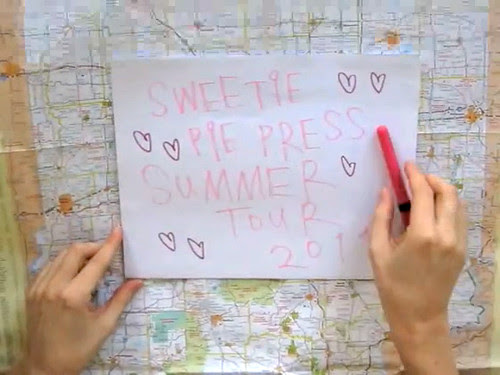 SWEETIE
PIE PRESS
SUMMER
TOUR
201